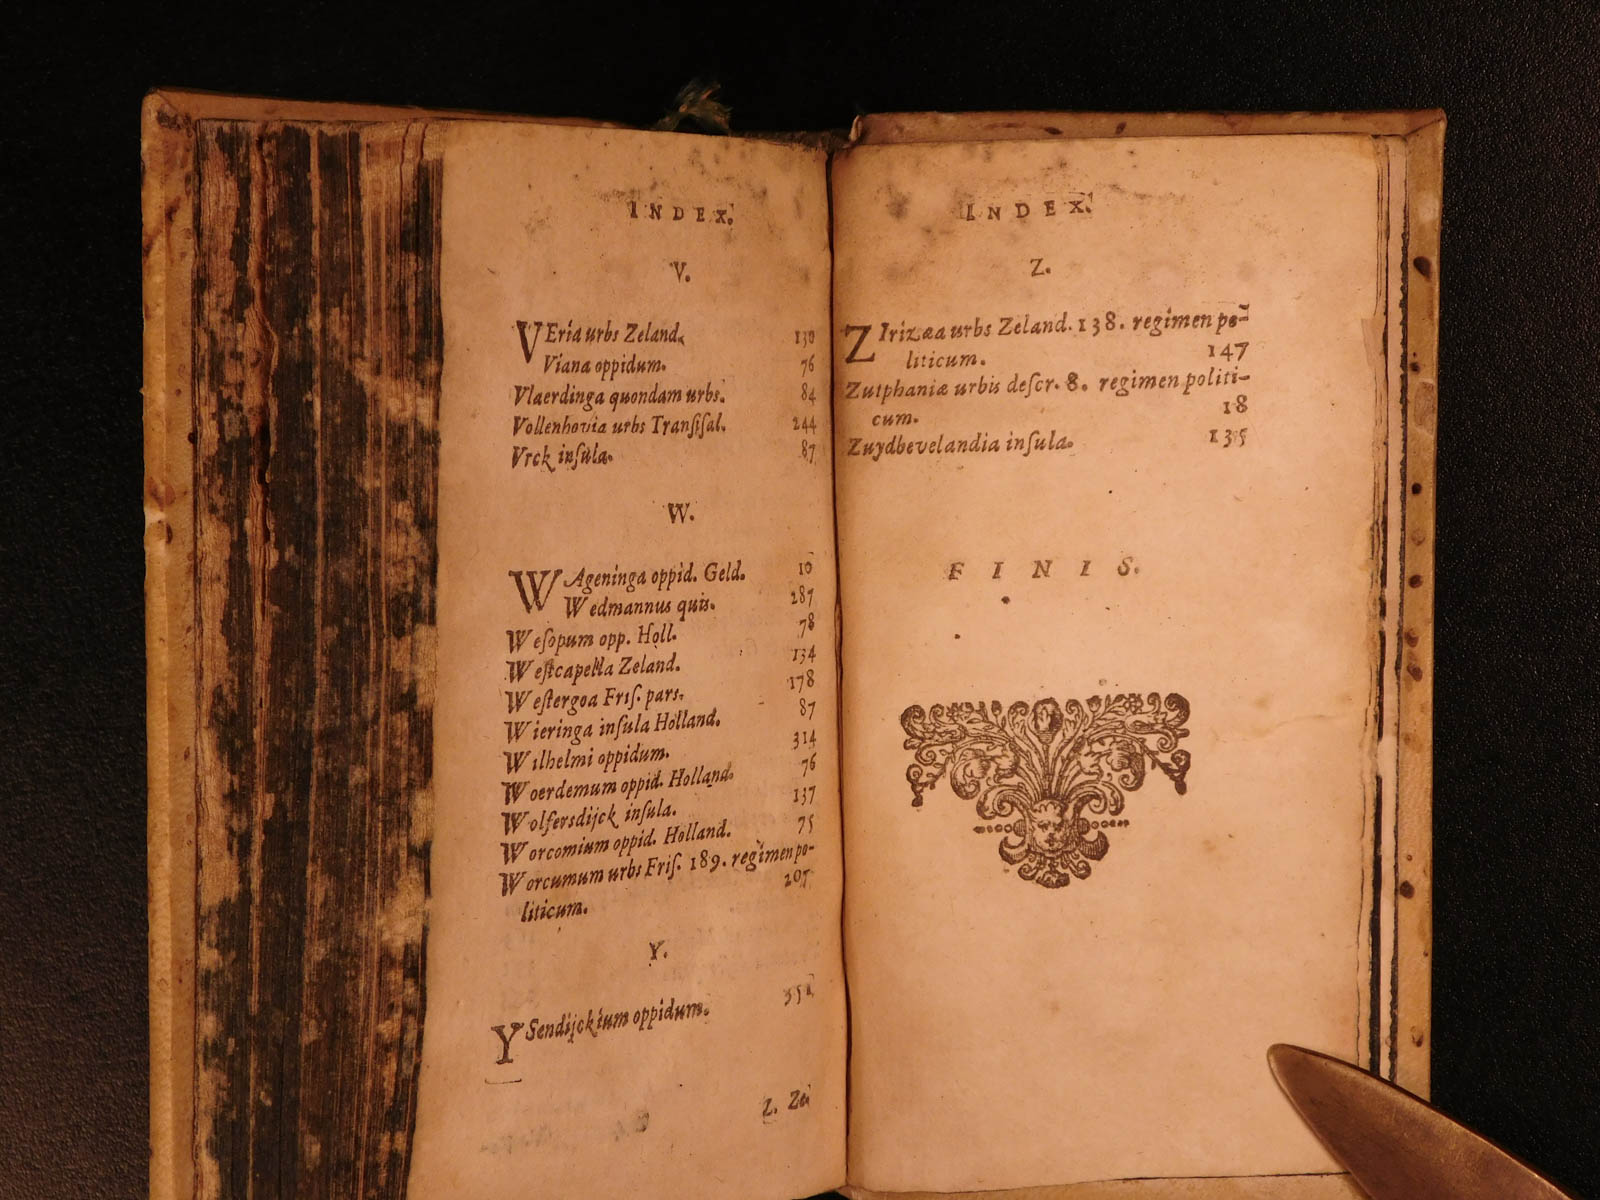 INDEX.
V.
VEria urbs Zeland. 130
Viana oppidum. 76
Vlaerdinga quondam urbs. 84
Vollenhovia urbs Transiſal. 244
Vrck inſula. 87
W.
WAgeninga oppid. Geld. 10
Wedmannus quis. 287
Weſopum opp. Holl. 78
Weſtcapella Zeland. 134
Weſtergoa Friſ. pars. 178
Wieringa inſula Holland. 87
Wilhelmi oppidum. 314
Woerdemum oppid. Holland. 76
Wolfersdijck inſula. 137
Worcomium oppid. Holland. 75
Worcumum urbs Friſ. 189. regimen po-
liticum. 207
Y.
YSendijckium oppidum. 351
Z. Zi
INDEX.
Z.
ZIrizæa urbs Zeland. 138. regimen po-
liticum. 147
Zutphaniæ urbis deſcr. 8. regimen politi-
cum. 18
Zuydbevelandia inſula. 135
FINIS.